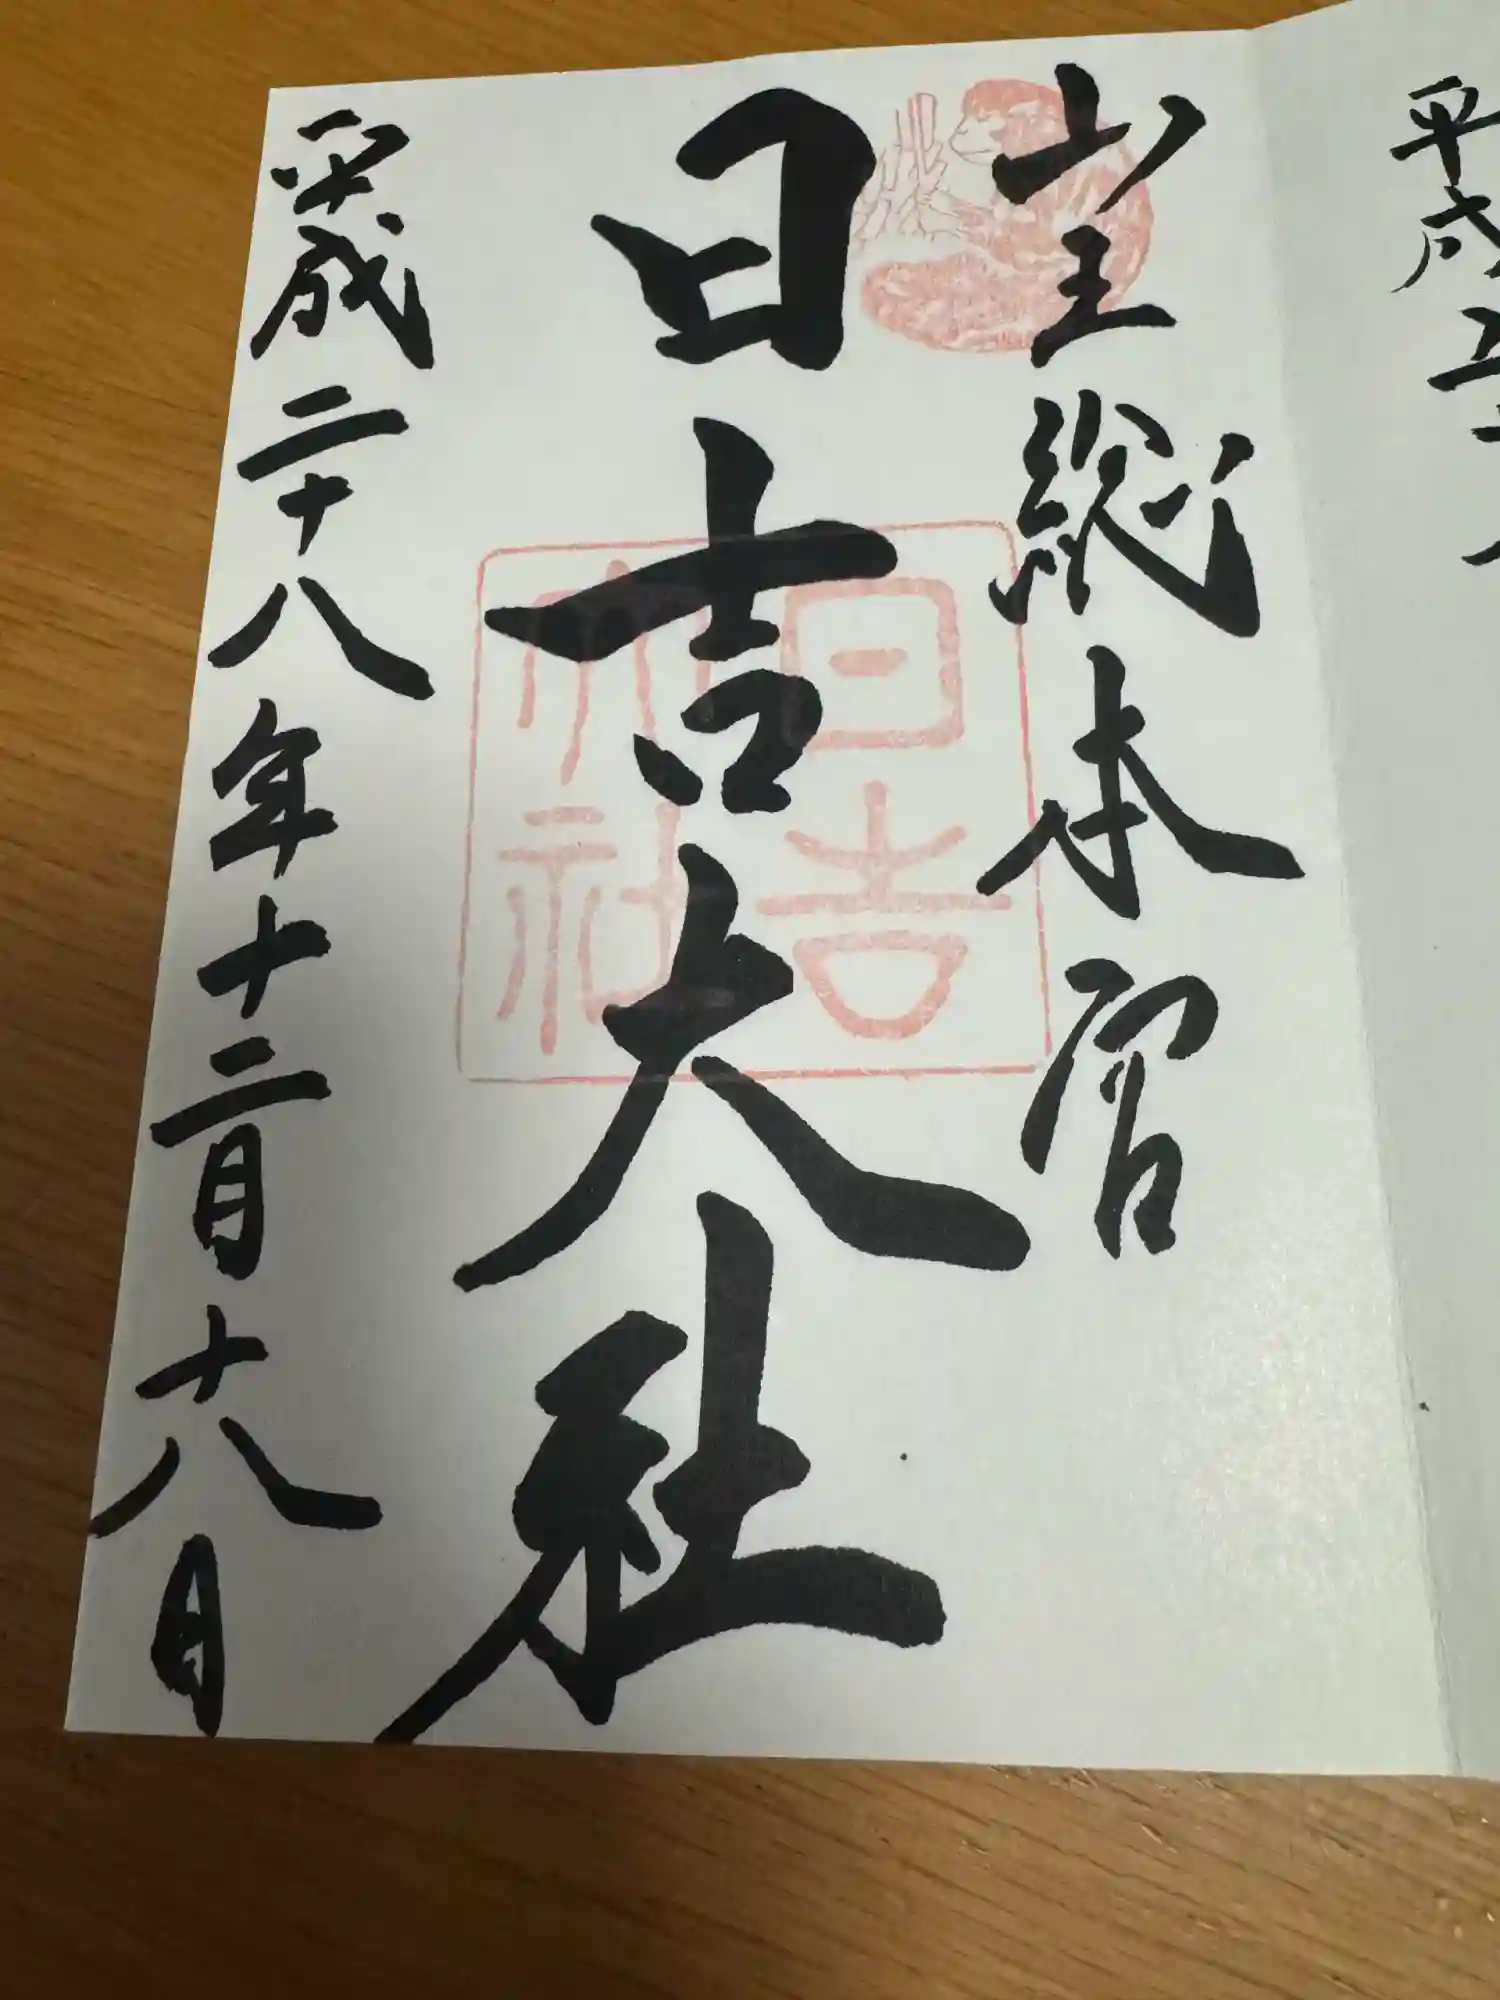 山王総本宮
日吉大社
日吉大社
平成二十八年十二月十八日
平成